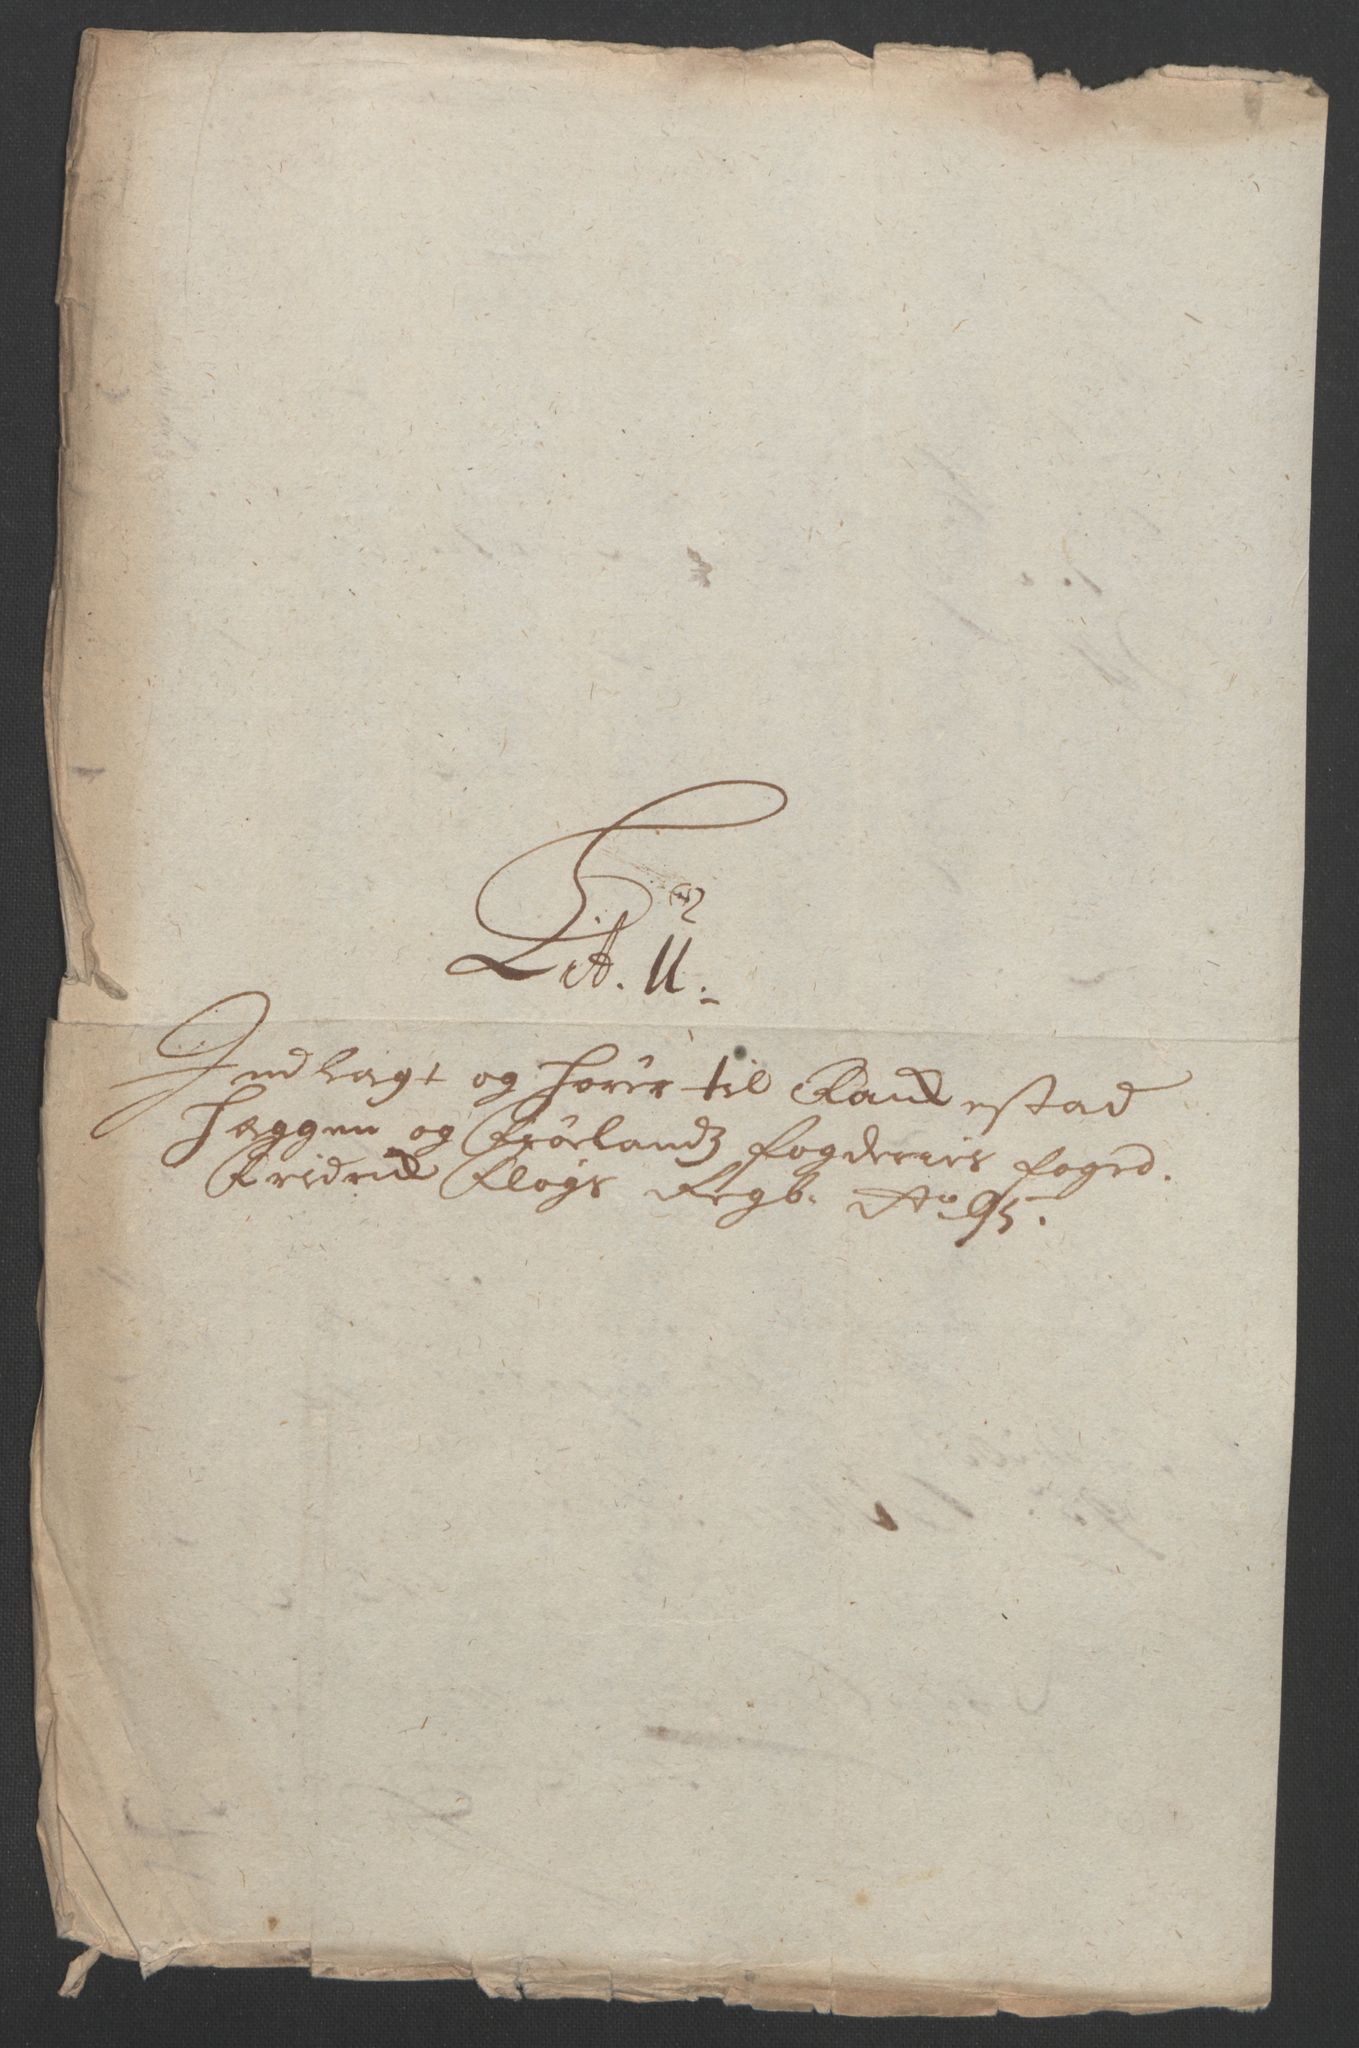 Lit. U.
Indlagt og hörer til Rakkestad
Heggen og Frölandz fogderies foged.
Fridrich Clogs Regb. Ao. 95.